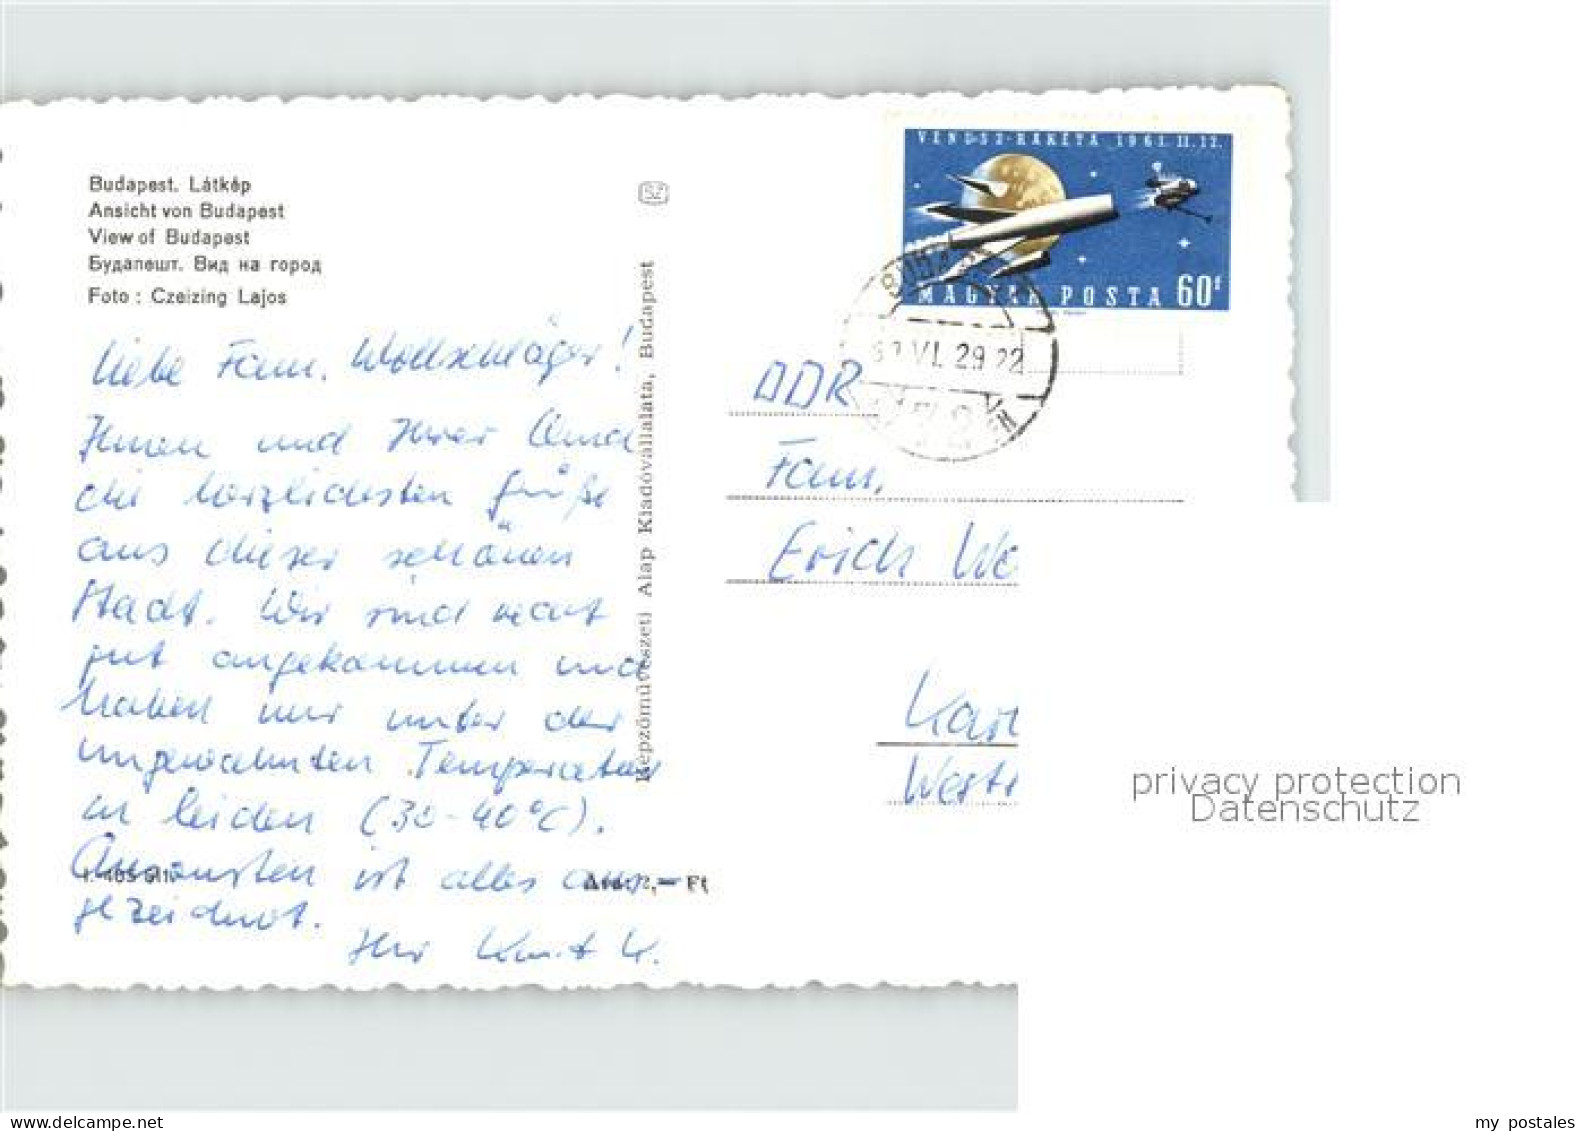 Budapest. Látkép
Ansicht von Budapest
View of Budapest
Будапешт. Вид на город
Foto : Czeizing Lajos
Liebe Fam. Wollschläger!
Ihnen und Ihrer Oma
die herzlichsten Grüße
aus dieser schönen
Stadt. Wir sind recht
gut angekommen und
haben nur unter der
ungewohnten Temperatur
zu leiden (30-40°C).
Ansonsten ist alles aus
gezeichnet.
Ihr Knut K.
Ft
Képzőművészeti Alap Kiadóvállalata, Budapest
VÉNUSZ-RAKÉTA 1961. II. 12.
MAGYAR POSTA 60f
VI. 29 22
DDR
Fam.
Erich
privacy protection
Datenschutz
www.delcampe.net
my postales